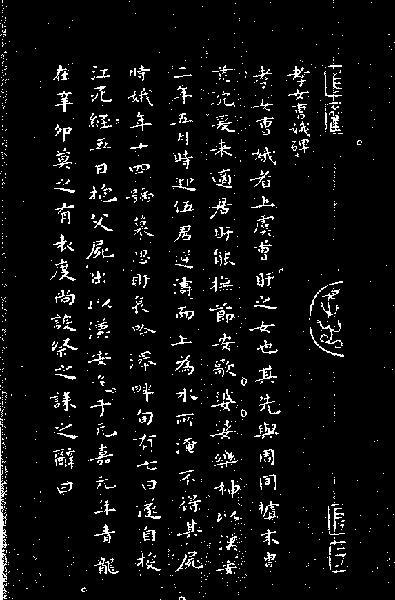 孝女曹娥碑
孝女曹娥者上虞曹盱之女也其先與周同祖末冑
荒沈爰来適居盱能撫節安歌婆娑樂神以漢安
二年五月時迎伍君逆濤而上為水所淹不得其屍
時娥年十四號慕思盱哀吟澤畔旬有七日遂自投
江死經五日抱父屍出以漢安迄于元嘉元年青龍
在辛卯莫之有表度尚設祭之誄之辭曰